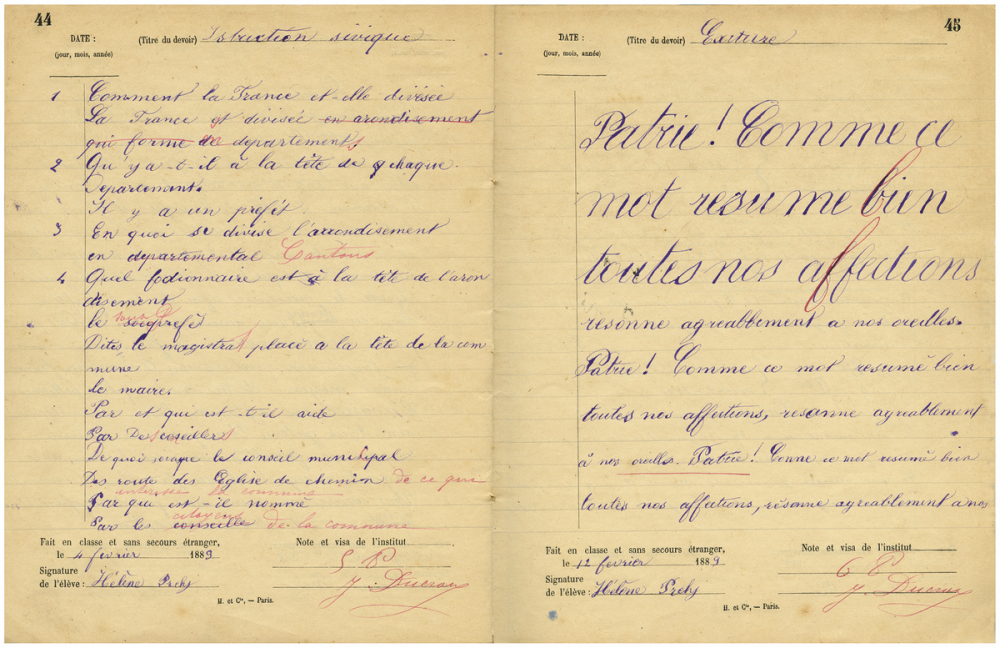 44
DATE :
(jour, mois, année)
(Titre du devoir) Istruction sivique
1 Comment la France et-elle divisée
La France est divisée en arondisement
qui forme de departements
2 Qu'y a-t-il à la tête de chaque
Departement.
Il y a un préfet.
3 En quoi se divise l'arrondisement
en departemental Cantons
4 Quel fodionnaire est à la tête de l'aron
disement
le prefet
Dites le magistrat placé a la tête de la com
mune
le maire.
Par et qui est-t-il aide
Par Des coseillers
De quoi le conseil municipal
Des route des Eglise de chemin de ce qui
interesse la commune
Par qui est-il nommé
citoyens
Par les conseille de la commune
Fait en classe et sans secours étranger,
le 4 fevrier 1889
Signature
de l'élève : Hélène
Note et visa de l'institut
5 P
J. Ducros
H. et Cie, — Paris.
45
DATE :
(jour, mois, année)
(Titre du devoir) Exriture
Patrie ! Comme ce
mot resume bien
toutes nos affections
resonne agreablement a nos oreilles.
Patrie ! Comme ce mot resumé bien
toutes nos affections, resonne agreablement
à nos oreilles. Patrie ! Comme ce mot resumé bien
toutes nos affections, résonne agreablement a nos
Fait en classe et sans secours étranger,
le 12 fevrier 1889
Signature
de l'élève : Hélène
Note et visa de l'institut
6 P
J. Ducros
H. et Cie, — Paris.